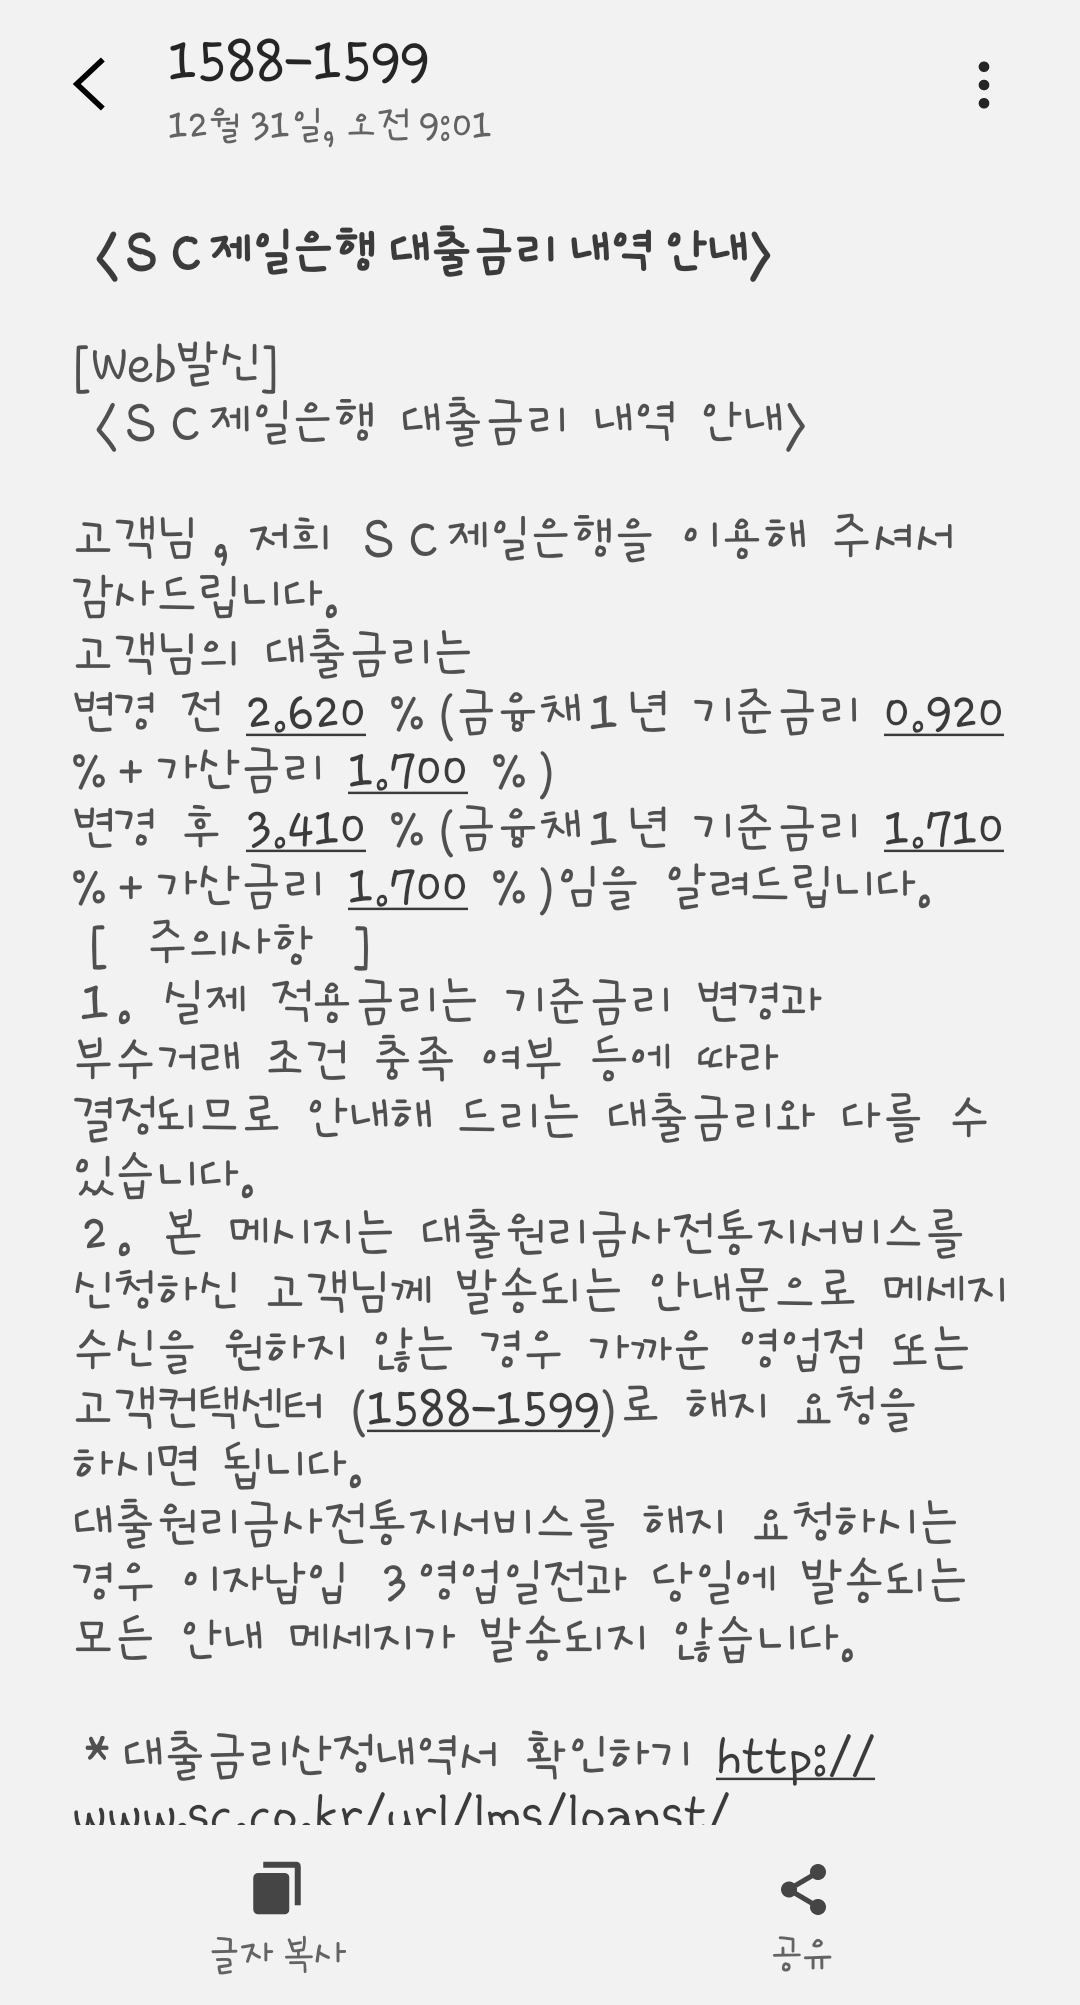 1588-1599
12월 31일, 오전 9:01
<S C 제일은행 대출금리 내역 안내>
[Web발신]
<S C 제일은행 대출금리 내역 안내>
고객님 , 저희 S C 제일은행을 이용해 주셔서
감사드립니다.
고객님의 대출금리는
변경 전 2.620 % (금융채1년 기준금리 0.920
% + 가산금리 1.700 % )
변경 후 3.410 % (금융채1년 기준금리 1.710
% + 가산금리 1.700 % )임을 알려드립니다.
[ 주의사항 ]
1. 실제 적용금리는 기준금리 변경과
부수거래 조건 충족 여부 등에 따라
결정되므로 안내해 드리는 대출금리와 다를 수
있습니다.
2. 본 메시지는 대출원리금사전통지서비스를
신청하신 고객님께 발송되는 안내문으로 메세지
수신을 원하지 않는 경우 가까운 영업점 또는
고객컨택센터 (1588-1599)로 해지 요청을
하시면 됩니다.
대출원리금사전통지서비스를 해지 요청하시는
경우 이자납입 3영업일전과 당일에 발송되는
모든 안내 메세지가 발송되지 않습니다.
* 대출금리산정내역서 확인하기 http://
www.sc.co.kr/url/lms/loanst/
글자 복사
공유